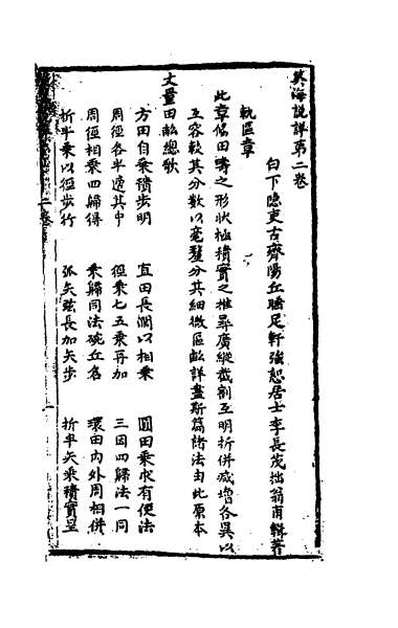 筭海說詳第二卷
白下隱吏古齊陽丘睡足軒強恕居士李長茂拙翁甫輯著
軌區章
此章俻田疇之形狀極積實之推尋廣縱截割互明折併减增各異以
互容較其分數以毫釐分其細微區畝詳盡斯篇諸法由此原本
丈量田畝總歌
方田自乗積步明 直田長濶以相乗 圓田乗求有便法
周徑各半適其中 徑乗七五乗再加 三因四歸法一同
周徑相乗四歸得 乗歸同法碗丘名 環田內外周相併
折半乗以徑步行 弧矢弦長加矢步 折半矢乗積實呈